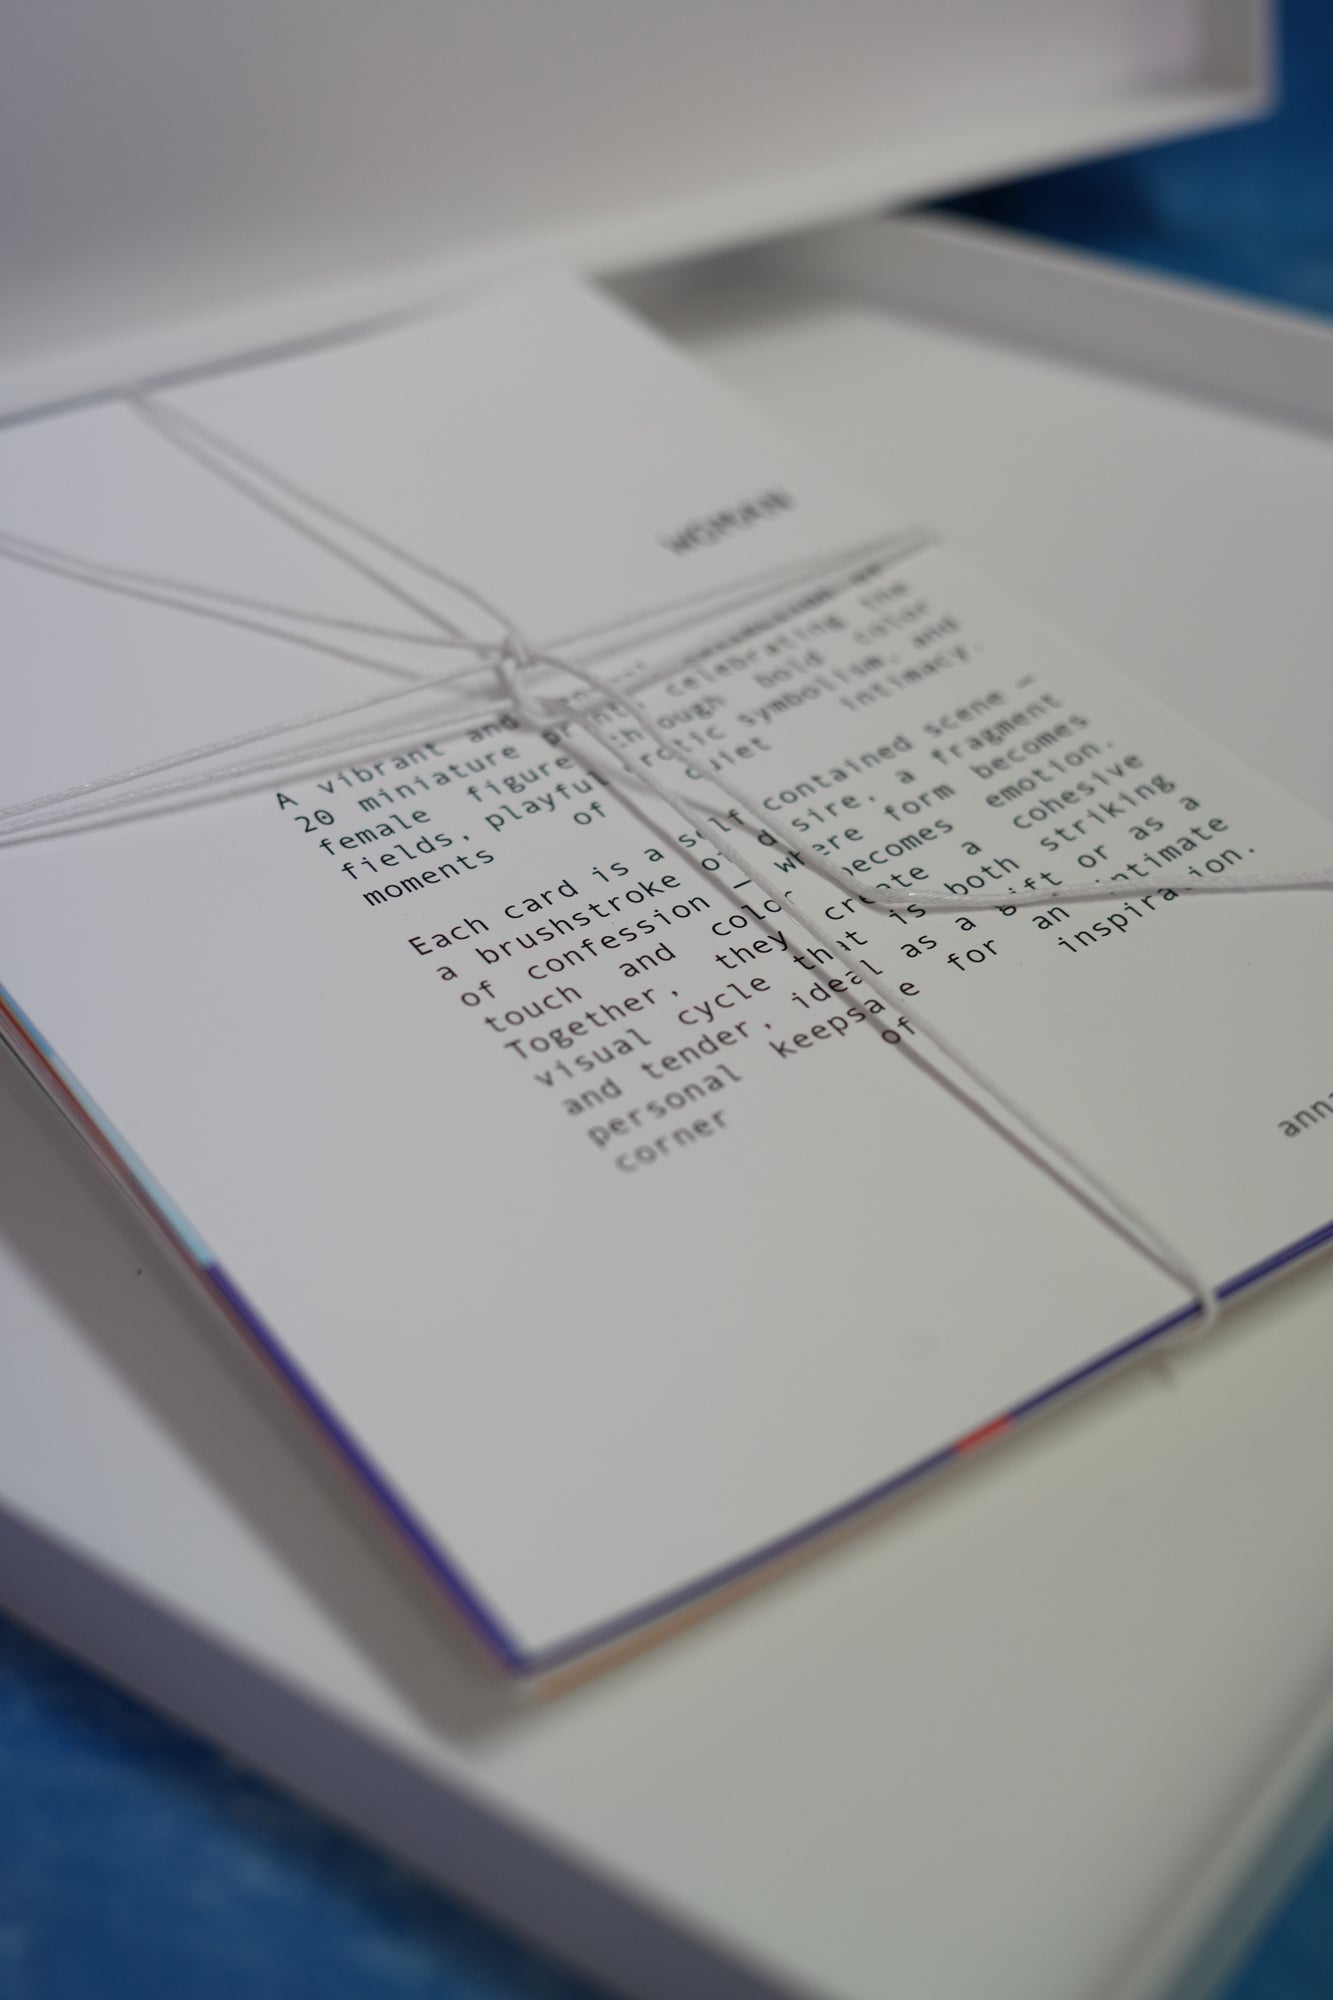 WOMAN
A vibrant and collection of
20 miniature prints, celebrating the
female figure through bold color
fields, playful erotic symbolism, and
moments of quiet intimacy.
Each card is a self contained scene —
a brushstroke of desire, a fragment
of confession — where form becomes
touch and color becomes emotion.
Together, they create a cohesive
visual cycle that is both striking
and tender, ideal as a gift or as a
personal keepsake for an intimate
corner of inspiration.
anna